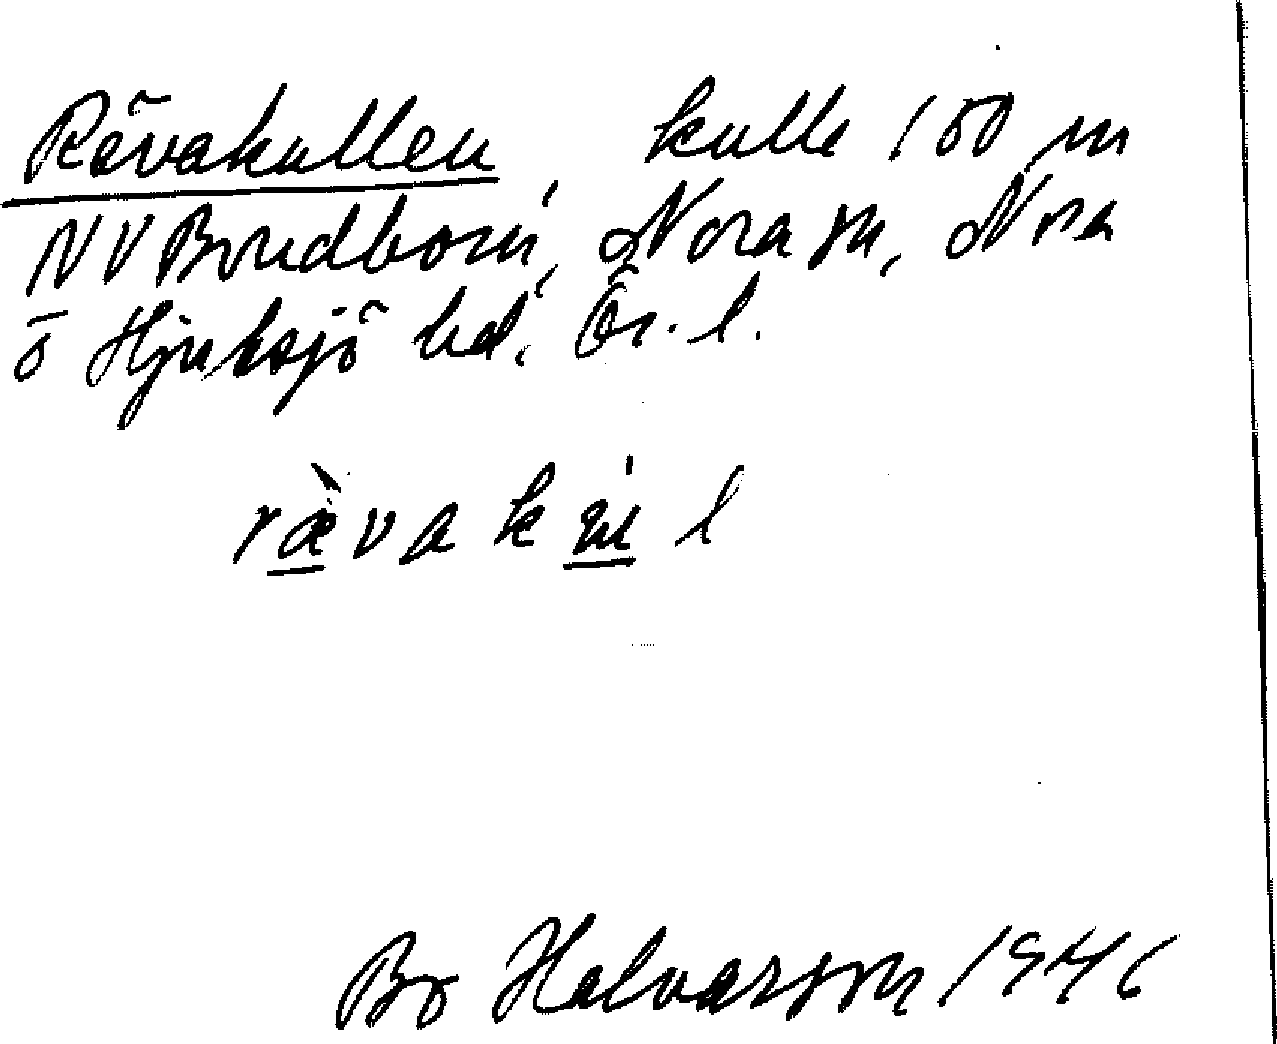 Rävakullen, kulle 150 m
NV Bondborn, Nora sn, Nora
o Hjulsjö hd, Ör. l.
rævakul
Bo Halvarson 1946